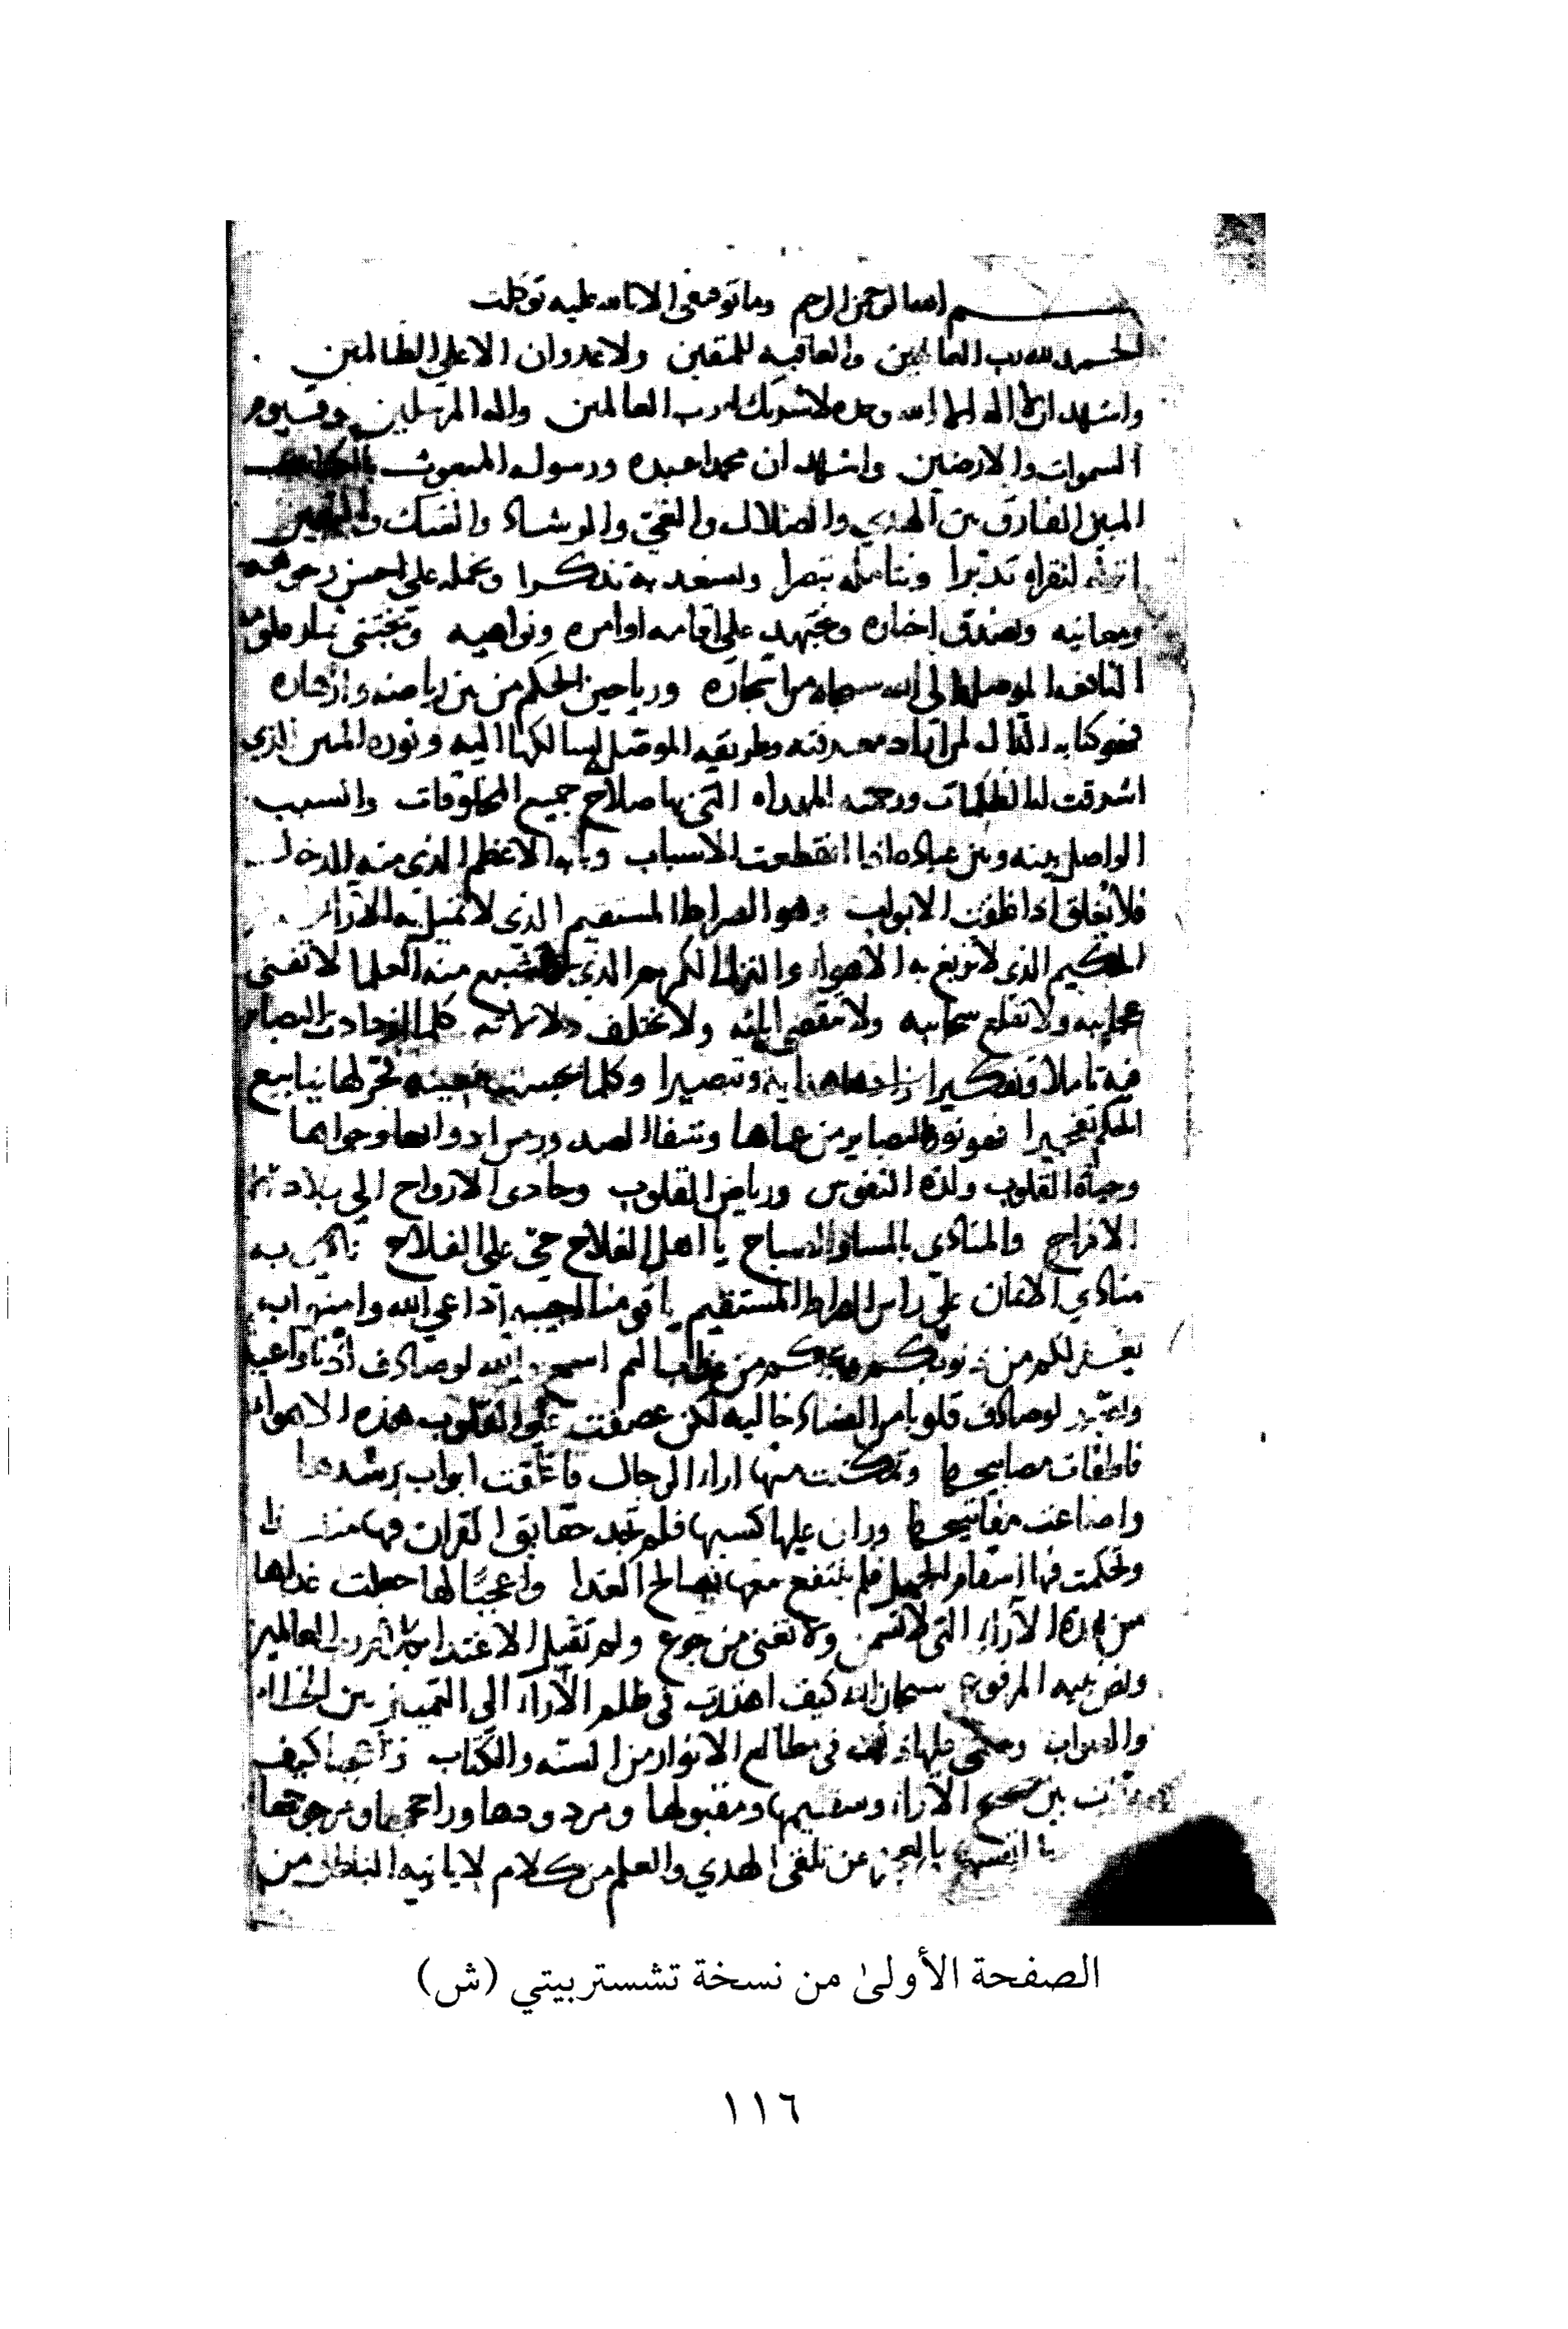 بسم الله الرحمن الرحيم وما توفيقي الا بالله عليه توكلت
الحمد لله رب العالمين والعاقبه للمتقين ولا عدوان الا على الظالمين
واشهد ان لا اله الا الله وحده لا شريك له رب العالمين واله المرسلين وقيوم
السموات والارضين واشهد ان محمدا عبده ورسوله المبعوث بالكتاب
المبين الفارق بين الهدي والضلال والغي والرشاد والشك واليقين
انزله لنقراه تدبرا ونتامله تبصرا ونسعد به تذكرا ونحمله على احسن وجوهه
ومعانيه ونصدق اخباره ونجتهد على اقامه اوامره ونواهيه ونجتني ثمار علومه
النافعه الموصله الى الله سبحانه من اشجاره ورياحين الحكم من بين رياضه وازهاره
فهو كتابه الدال لمن اراد معرفته وطريقه الموصل لسالكها اليه ونوره المبين الذي
اشرقت له الظلمات ورحمته المهداه التي بها صلاح جميع المخلوقات والسبب
الواصل بينه وبين عباده اذا انقطعت الاسباب وبابه الاعظم الذي منه الدخول
فلا يغلق اذا غلقت الابواب وهو الصراط المستقيم الذي لا تميل به الآراء
الحكيم الذي لا تزيغ به الاهواء والنزل الكريم الذي لا يشبع منه العلما لا تفنى
عجايبه ولا تقلع سحايبه ولا تنقضي اياته ولا تختلف دلالاته كلما ازدادت البصاير
فيه تاملا وتفكيرا زادها هدايه وتبصيرا وكلما بجست معينه فجر لها ينابيع
الحكم تفجيرا فهو نور البصاير من عماها وشفا الصدور من ادوائها وجواها
وحياة القلوب ولذة النفوس ورياض القلوب وحادي الارواح الى بلاد
الافراح والمنادي بالمسا والصباح يا اهل الفلاح حي على الفلاح نادى به
منادي الايمان على راس الصراط المستقيم يا قومنا اجيبوا داعي الله وامنوا به
يغفر لكم من ذنوبكم ويجركم من عذاب اليم اسمع والله لو صادف اذنا واعية
وابصر لو صادف قلوبا من الفساد خاليه لكن عصفت على القلوب هذه الاهواء
فاطفات مصابيحها وتمكنت منها اراء الرجال فاغلقت ابواب رشدها
واضاعت مفاتيحها وران عليها كسبها فلم تجد حقايق القران فيها منفذا
وتحكمت فيها اسقام الجهل فلم ينتفع معها بصالح الغذا واعجبًا لها جعلت غذاها
من هذه الآراء التي لا تسمن ولا تغني من جوع ولم تقبل الاغتذا بكلام رب العالمين
ونص نبيه المرفوع سبحان الله كيف اهتدت في ظلم الآراء الى التمييز بين الخطاء
والصواب وخفي عليها ذلك في مطالع الانوار من السنه والكتاب كيف
بين صحيح الآراء وسقيمها ومقبولها ومردودها وراجحها ومرجوحها
انفسهم بالعجز عن تلقي الهدي والعلم من كلام لا ياتيه الباطل من
الصفحة الأولىٰ من نسخة تشستربيتي (ش)
١١٦